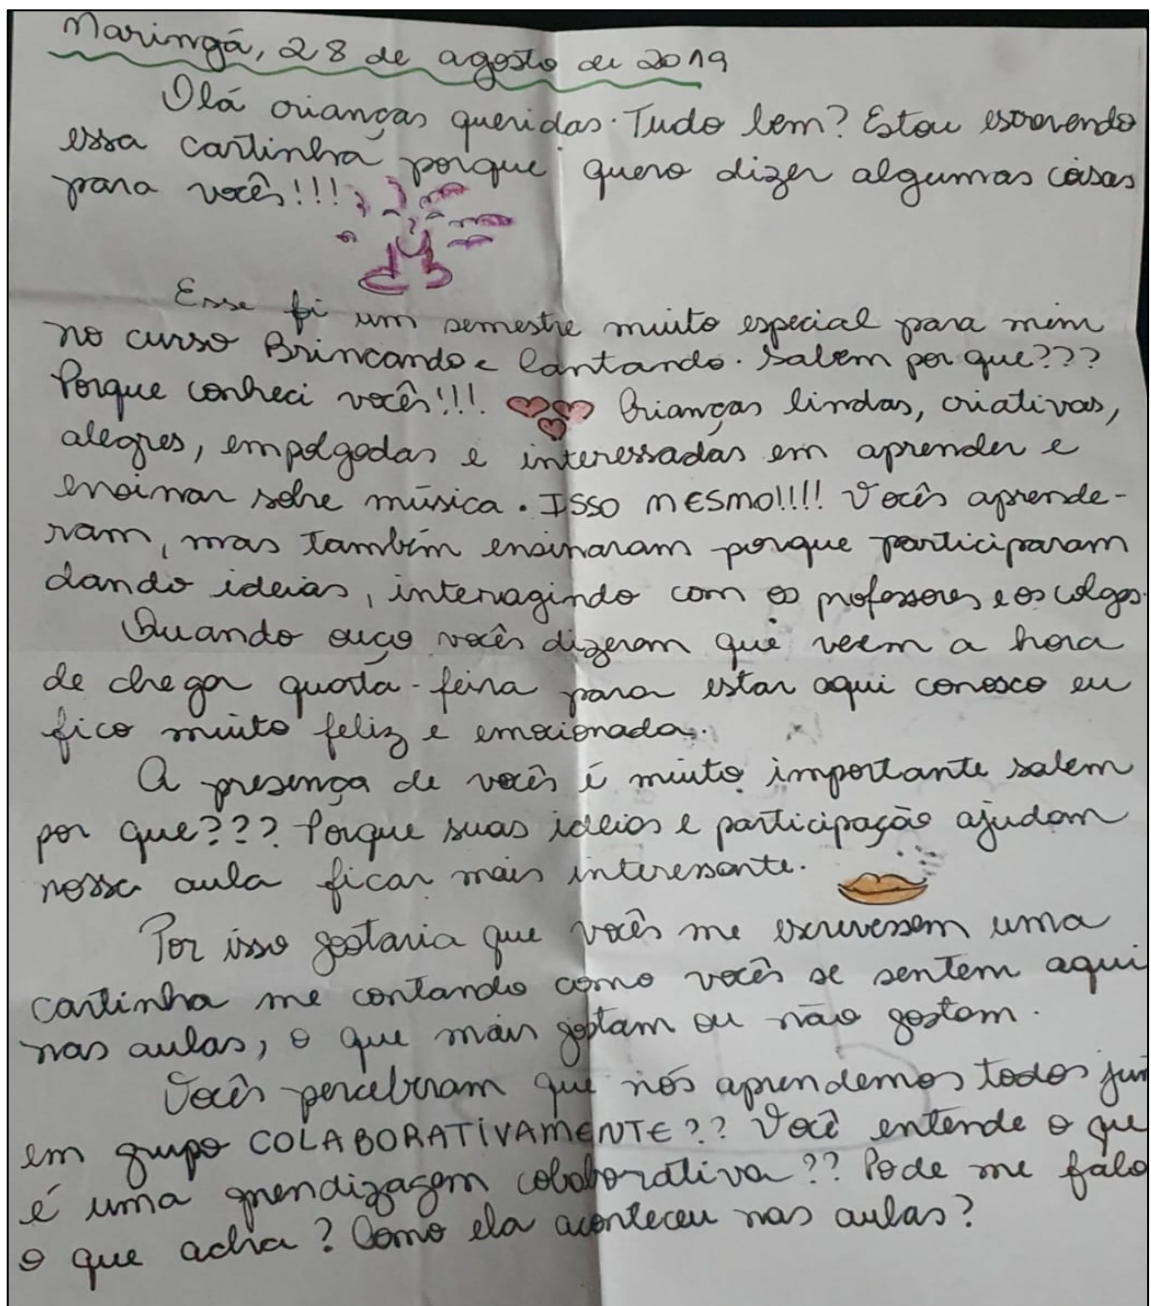 Maringá, 28 de agosto de 2019
Olá crianças queridas. Tudo bem? Estou escrevendo
essa cartinha porque quero dizer algumas coisas
para vocês!!!
Esse foi um semestre muito especial para mim
no curso Brincando e Cantando. Sabem por que???
Porque conheci vocês!!! Crianças lindas, criativas,
alegres, empolgadas e interessadas em aprender e
ensinar sobre música. ISSO MESMO!!!! Vocês aprende-
ram, mas também ensinaram porque participaram
dando ideias, interagindo com os professores e os colegas.
Quando ouço vocês dizeram que veem a hora
de chegar quarta-feira para estar aqui conosco eu
fico muito feliz e emocionada.
A presença de vocês é muito importante sabem
por que??? Porque suas ideias e participação ajudam
nossa aula ficar mais interessante.
Por isso gostaria que vocês me escrevessem uma
cartinha me contando como vocês se sentem aqui
nas aulas, o que mais gostam ou não gostam.
Vocês perceberam que nós aprendemos todos jun
em grupo COLABORATIVAMENTE?? Você entende o que
é uma aprendizagem colaborativa?? Pode me fala
o que acha? Como ela aconteceu nas aulas?